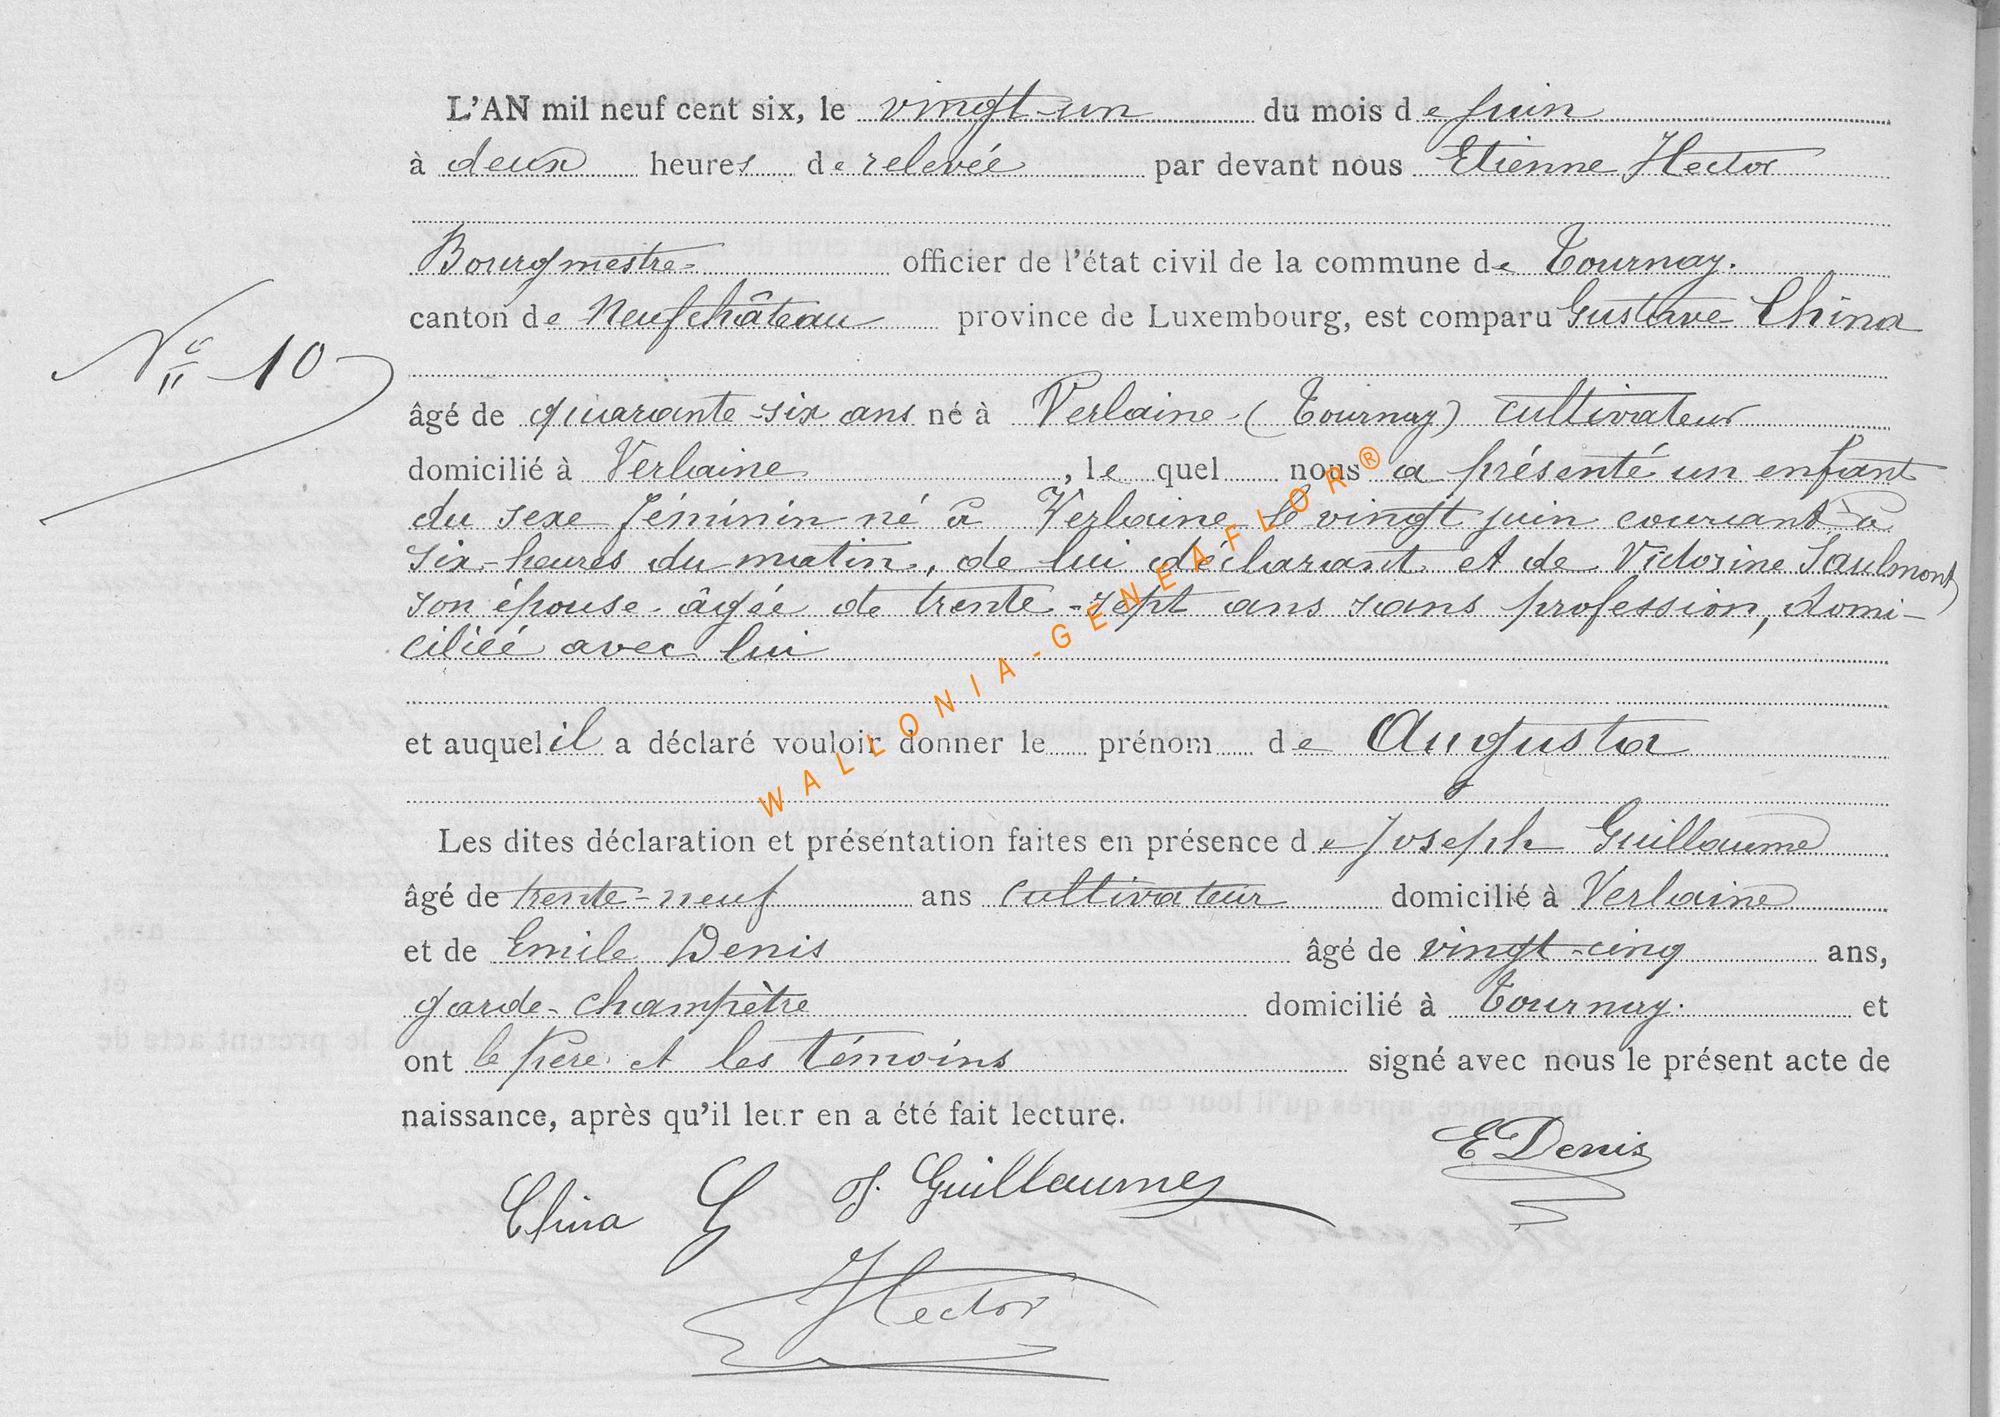 L'AN mil neuf cent six, le vingt-un du mois de juin
à deux heures de relevée par devant nous Etienne Hector
Bourgmestre officier de l'état civil de la commune de Tournay.
canton de Neufchâteau province de Luxembourg, est comparu Gustave China
Nº 10
âgé de quarante-six ans né à Verlaine (Tournay) cultivateur
domicilié à Verlaine, le quel nous a présenté un enfant
du sexe féminin né à Verlaine le vingt juin courant à
six-heures du matin, de lui déclarant et de Victorine Saulmont,
son épouse âgée de trente-sept ans sans profession, domi-
ciliée avec lui
et auquel il a déclaré vouloir donner le prénom de Augusta
Les dites déclaration et présentation faites en présence de Joseph Guillaume
âgé de trente-neuf ans cultivateur domicilié à Verlaine
et de Emile Denis âgé de vingt-cinq ans,
garde-champêtre domicilié à Tournay. et
ont le père et les témoins signé avec nous le présent acte de
naissance, après qu'il leur en a été fait lecture.
E Denis
China G J. Guillaume
Hector
WALLONIA-GENEAFLOR®